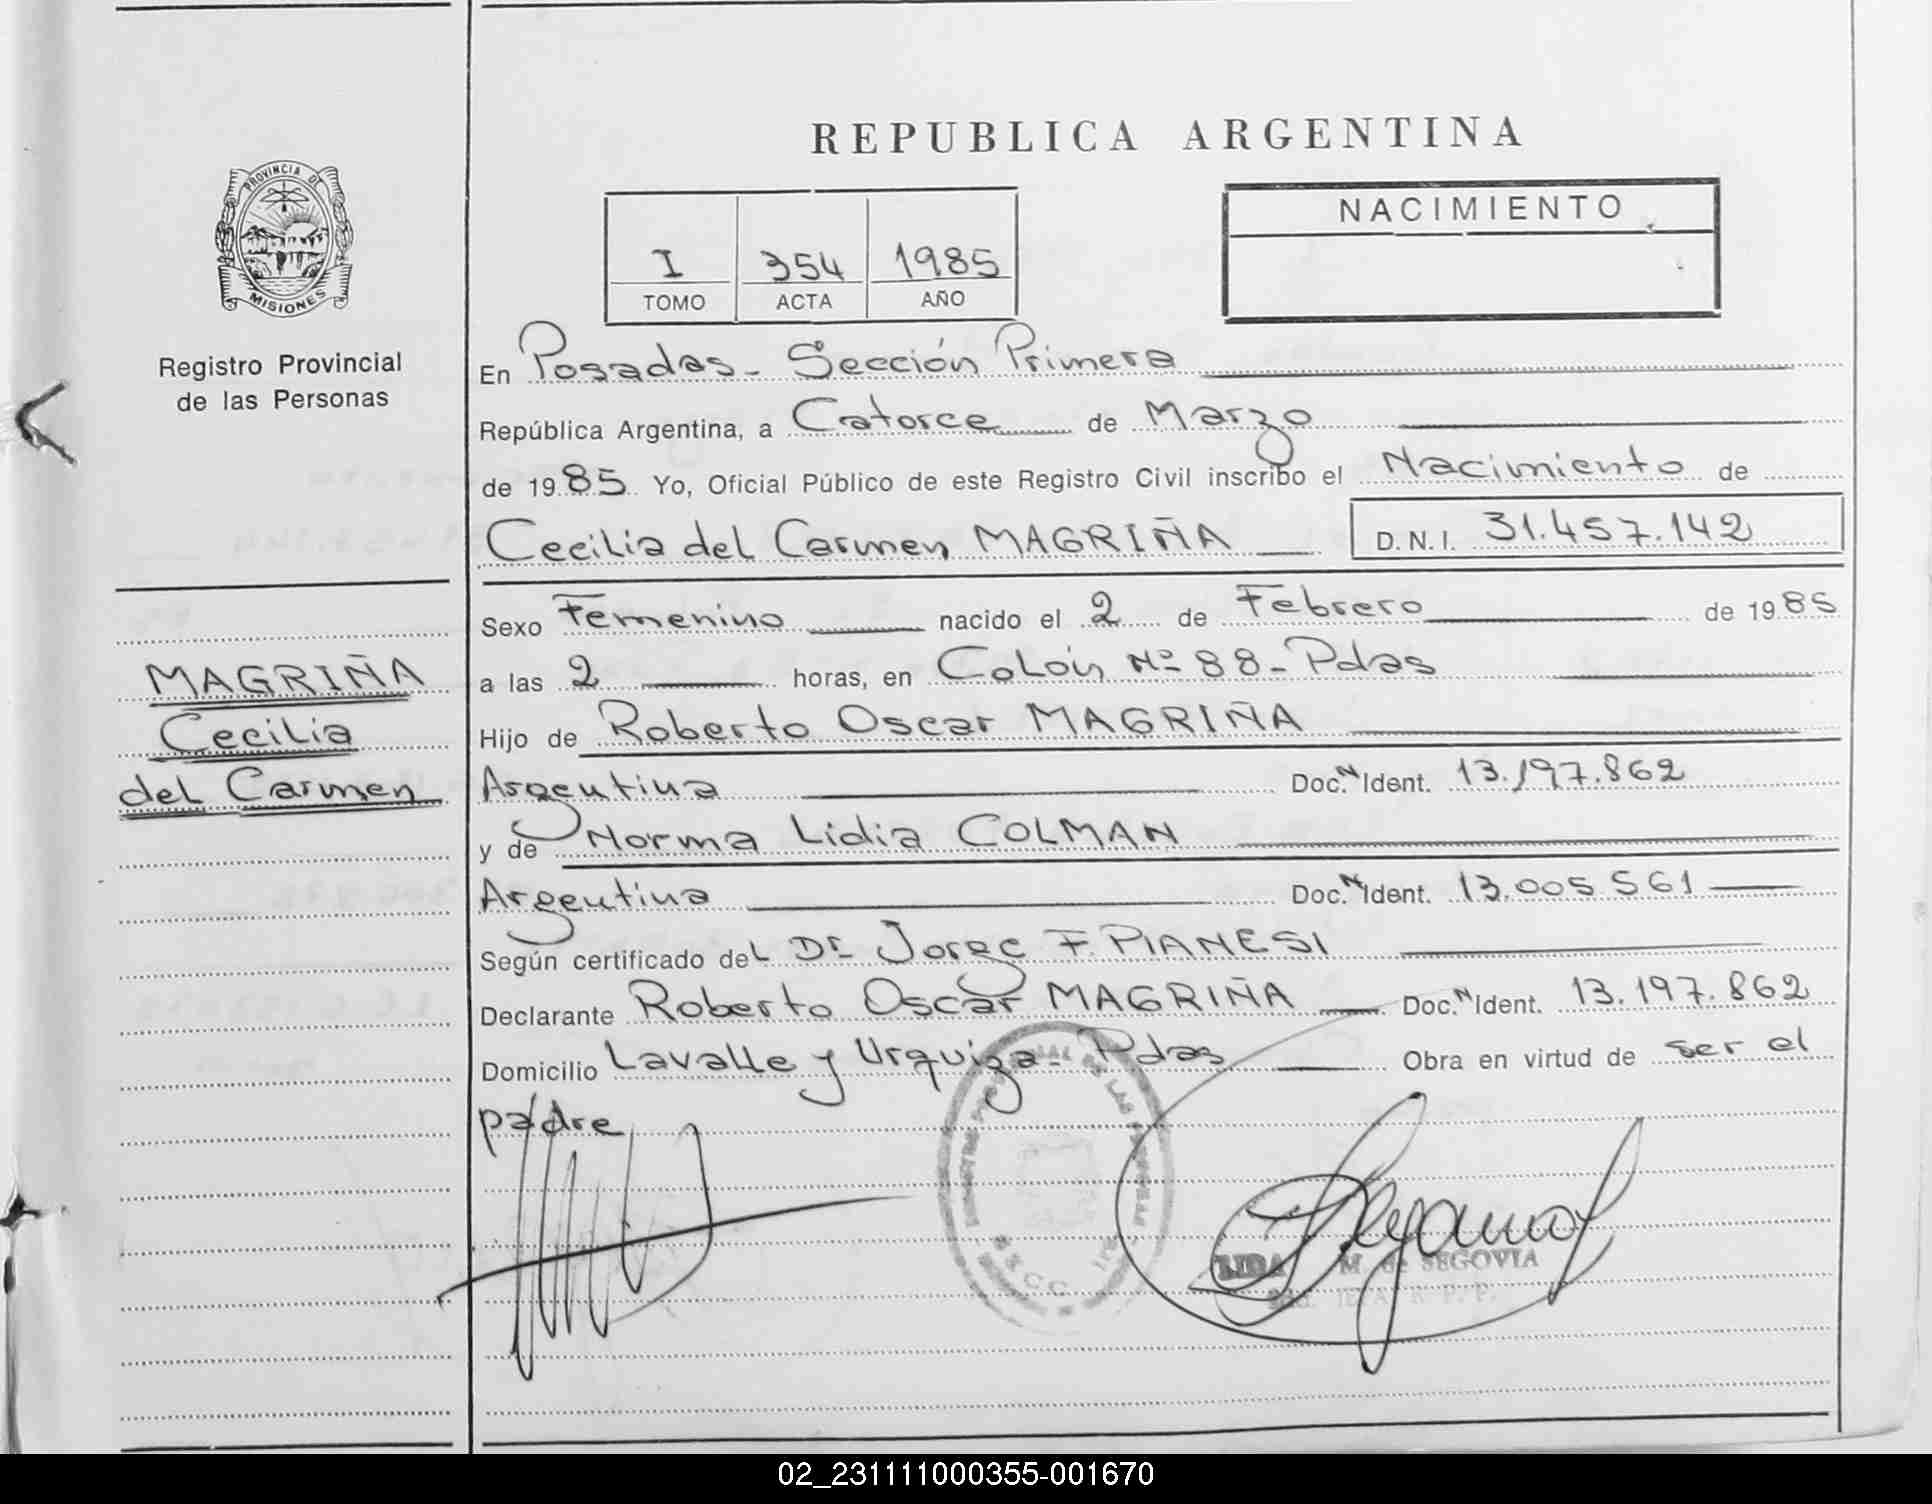 REPUBLICA ARGENTINA
PROVINCIA DE
MISIONES
Registro Provincial
de las Personas
I 354 1985
TOMO ACTA AÑO
NACIMIENTO
En Posadas - Sección Primera
República Argentina, a Catorce de Marzo
de 19 85 Yo, Oficial Público de este Registro Civil inscribo el Nacimiento de
Cecilia del Carmen MAGRIÑA D.N.I. 31.457.142
MAGRIÑA
Cecilia
del Carmen
Sexo Femenino nacido el 2 de Febrero de 19 85
a las 2 horas, en Colón Nº 88 - Pdas
Hijo de Roberto Oscar MAGRIÑA
Argentina Doc. N Ident. 13.197.862
y de Norma Lidia COLMAN
Argentina Doc. N Ident. 13.005.561
Según certificado del Dr Jorge F. PIANESI
Declarante Roberto Oscar MAGRIÑA Doc. N Ident. 13.197.862
Domicilio Lavalle y Urquiza - Pdas Obra en virtud de ser el
padre
LIDA M. de SEGOVIA
02_231111000355-001670